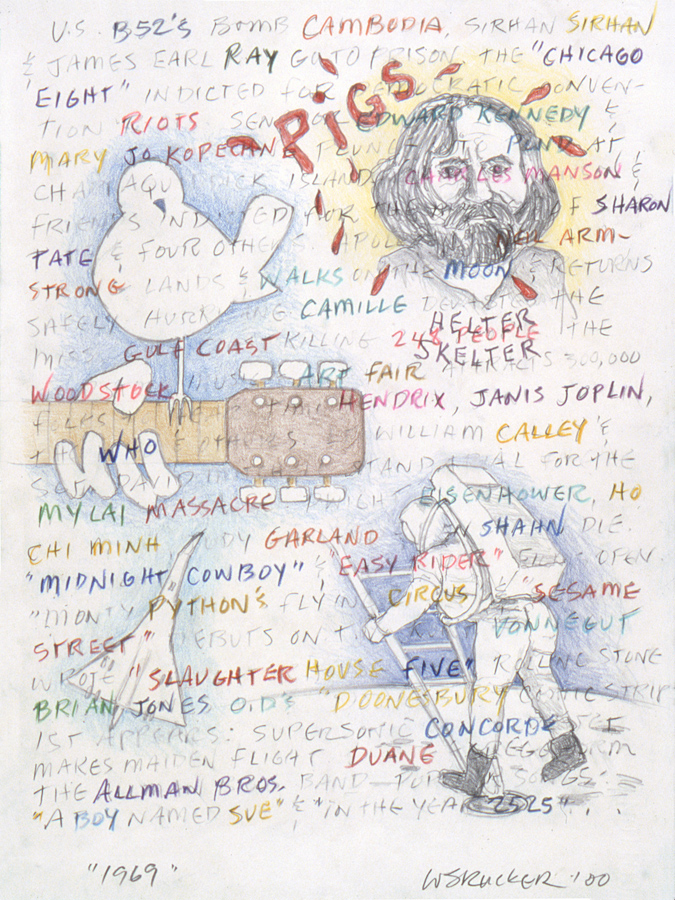 U.S. B52'S BOMB CAMBODIA, SIRHAN SIRHAN
& JAMES EARL RAY GO TO PRISON. THE "CHICAGO
EIGHT" INDICTED FOR DEMOCRATIC CONVEN-
TION RIOTS. SENATOR EDWARD KENNEDY &
PIGS
MARY JO KOPECHNE PLUNGE INTO POND AT
CHAPPAQUIDDICK ISLAND. CHARLES MANSON &
FRIENDS INDICTED FOR THE OF SHARON
TATE & FOUR OTHERS. APOLLO NEIL ARM-
STRONG LANDS & WALKS ON THE MOON & RETURNS
SAFELY. HURRICANE CAMILLE THE
HELTER
MISS. GULF COAST KILLING 248 PEOPLE THE
SKELTER
WOODSTOCK MUSIC & ART FAIR ATTRACTS 300,000
HENDRIX, JANIS JOPLIN,
THE WHO & OTHERS. WILLIAM CALLEY &
SGT. DAVID STAND TRIAL FOR THE
MY LAI MASSACRE DWIGHT EISENHOWER, HO
CHI MINH, JUDY GARLAND BEN SHAHN DIE.
"MIDNIGHT COWBOY" & "EASY RIDER" FILMS OPEN.
"MONTY PYTHON'S FLYING CIRCUS & "SESAME
STREET" DEBUTS ON T.V. KURT VONNEGUT
WROTE "SLAUGHTER HOUSE FIVE" ROLLING STONE
BRIAN JONES O.D.'S "DOONESBURY COMIC STRIP
1ST APPEARS: SUPERSONIC CONCORDE JET
MAKES MAIDEN FLIGHT DUANE & GREGG FORM
THE ALLMAN BROS. BAND—POPULAR SONGS:
"A BOY NAMED SUE" & "IN THE YEAR 2525" . .
"1969" WSRUCKER '00